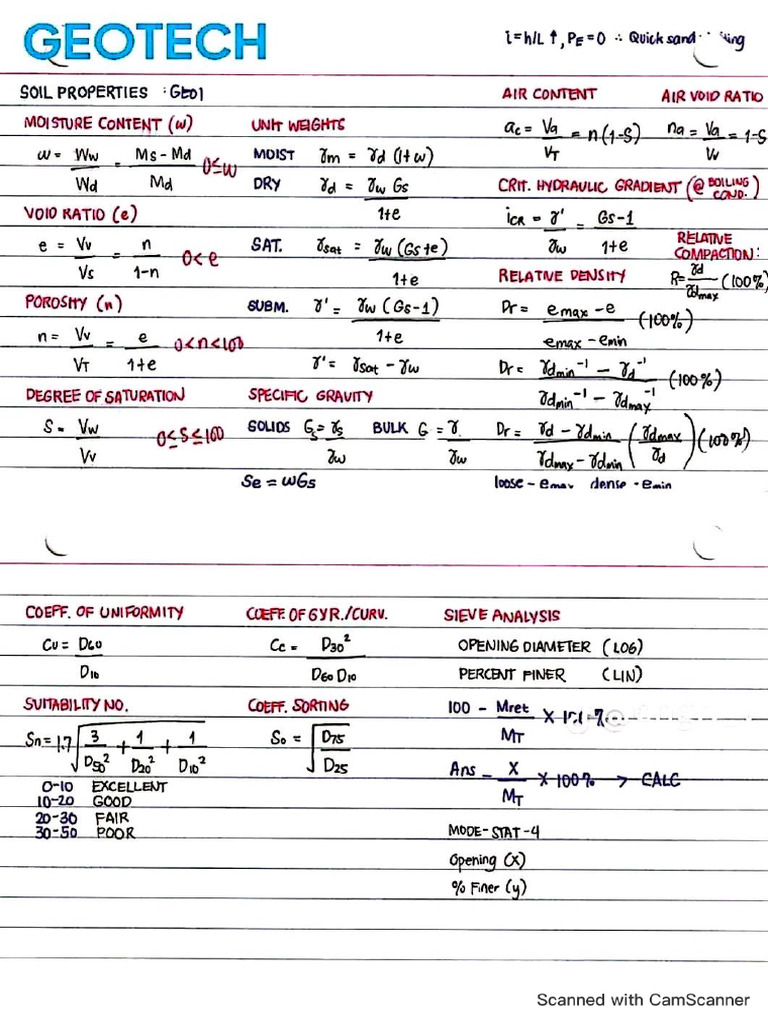 GEOTECH
i = h/L ↑, PE = 0 ∴ Quicksand
SOIL PROPERTIES : GE01
MOISTURE CONTENT (w)
w = Ww/Wd = (Ms - Md)/Md 0 ≤ w
VOID RATIO (e)
e = Vv/Vs = n/(1-n) 0 < e
POROSITY (n)
n = Vv/VT = e/(1+e) 0 < n < 100
DEGREE OF SATURATION
S = Vw/Vv 0 ≤ S ≤ 100
UNIT WEIGHTS
MOIST γm = γd (1+w)
DRY γd = γw Gs/(1+e)
SAT. γsat = γw (Gs+e)/(1+e)
SUBM. γ' = γw (Gs-1)/(1+e)
γ' = γsat - γw
SPECIFIC GRAVITY
SOLIDS Gs = γs/γw BULK G = γ/γw
Se = wGs
AIR CONTENT
ac = Va/VT = n(1-S)
AIR VOID RATIO
na = Va/Vv = 1-S
CRIT. HYDRAULIC GRADIENT (@ BOILING COND.)
icr = γ'/γw = (Gs-1)/(1+e)
RELATIVE COMPACTION:
R = γd/γdmax (100%)
RELATIVE DENSITY
Dr = (emax - e)/(emax - emin) (100%)
Dr = (γdmin⁻¹ - γd⁻¹)/(γdmin⁻¹ - γdmax⁻¹) (100%)
Dr = (γd - γdmin)/(γdmax - γdmin) (γdmax/γd) (100%)
loose - emax dense - emin
COEFF. OF UNIFORMITY
Cu = D60/D10
COEFF. OF GYR./CURV.
Cc = D30²/(D60 D10)
SIEVE ANALYSIS
OPENING DIAMETER (LOG)
PERCENT FINER (LIN)
SUITABILITY NO.
Sn = 1.7 √(3/D50² + 1/D20² + 1/D10²)
0-10 EXCELLENT
10-20 GOOD
20-30 FAIR
30-50 POOR
COEFF. SORTING
So = √(D75/D25)
100 - Mret/MT X
Ans - X/MT X 100% → CALC
MODE-STAT-4
Opening (x)
% Finer (y)
Scanned with CamScanner